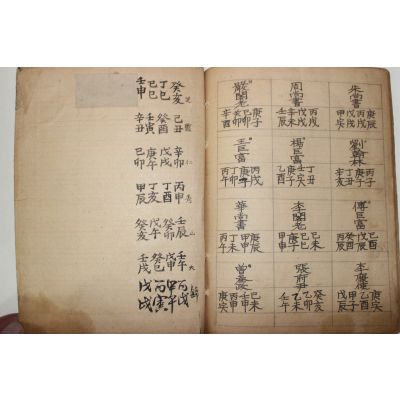 朱尚書
庚辰 丙戌 戊戌 甲寅
周尚書
丙戌 戊戌 辛未 壬辰
嚴閣老
庚子 己卯 癸卯 辛酉
劉翰林
楊巨富
丁丑 壬寅 庚子 乙酉
王巨富
丙戌 庚寅 丁卯 丙午
傅巨富
己丑 戊辰 癸酉
李閣老
己未 己巳 庚子 甲申
華尚書
甲申 丁未 丙午
李
庚寅 乙酉 甲子 戊辰
張府尹
癸亥 乙卯 乙未 壬午
曾
己未 甲申 丙申 庚寅
癸亥 丁巳 己巳 壬申
己丑 癸酉 壬寅 辛丑
辛卯 戊戌 庚午 己卯
丙申 丁亥 丁酉 甲辰
壬辰 癸卯 戊午 癸亥
壬午 戊申 癸巳 壬戌
丙戌 甲午 丙寅 戊戌